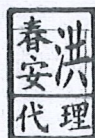 洪
春安
代理